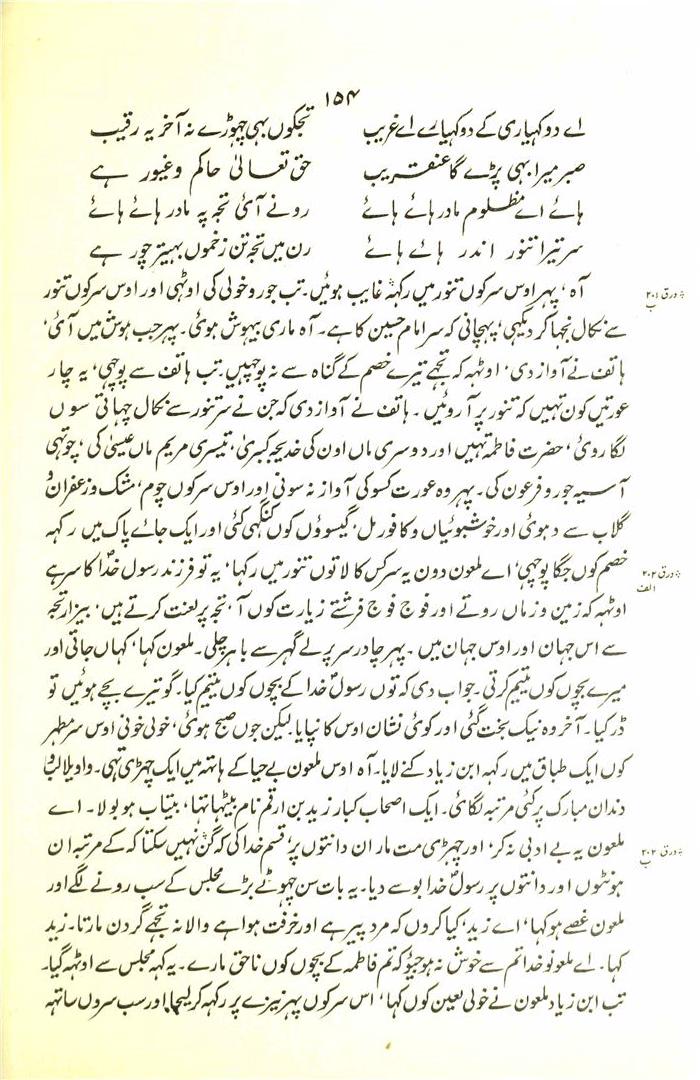 ۱۵۴
اے دوکہیاری کے دوکہیارے اے غریب تجکوں بہی چہوڑے نہ آخر یہ رقیب
صبر میرا بہی پڑے گا عنقریب حق تعالیٰ حاکم و غیور ہے
ہائے اے مظلوم مادر ہائے ہائے رونے آئی تجہ پہ مادر ہائے ہائے
سر تیرا تنور اندر ہائے ہائے رن میں تجہ تن زخموں بہیتر چور ہے
آہ، پہر اوس سر کوں تنور میں رکہہ غایب ہوئیں۔ تب جورو خولی کی اوٹہی اور اوس سر کوں تنور
سے نکال نجہا کر دیکہی، پہچانی کہ سر امام حسین کا ہے۔ آہ ماری بیہوش ہوئی۔ پہر جب ہوش میں آئی،
ہاتف نے آواز دی، اوٹہہ کہ تجہے تیرے خصم کے گناہ سے نہ پوچہیں۔ تب ہاتف سے پوچہی، یہ چار
عورتیں کون تہیں کہ تنور پر آ روئیں۔ ہاتف نے آواز دی کہ جن نے سر تنور سے نکال چہاتی سوں
لگا روئی، حضرت فاطمہ تہیں اور دوسری ماں اون کی خدیجہ کبریٰ، تیسری مریم ماں عیسیٰ کی، چوتہی
آسیہ جورو فرعون کی۔ پہر وہ عورت کسو کی آواز نہ سونی اور اوس سر کوں چوم، مشک و زعفران و
گلاب سے دہوئی اور خوشبوئیاں و کافور مل، گیسوؤں کوں کنگہی کئی اور ایک جائے پاک میں رکہہ
خصم کوں جگا پوچہی، اے ملعون دون یہ سر کس کا لا توں تنور میں رکہا، یہ تو فرزند رسول خدا کا سر ہے
اوٹہہ کہ زمین و زماں روتے اور فوج فوج فرشتے زیارت کوں آ، تجہ پر لعنت کرتے ہیں، بیزار تجہ
سے اس جہان اور اوس جہان میں۔ پہر چادر سر پر لے گہر سے باہر چلی۔ ملعون کہا، کہاں جاتی اور
میرے بچوں کوں یتیم کرتی۔ جواب دی کہ توں رسولؐ خدا کے بچوں کوں یتیم کیا۔ گو تیرے بچے ہوئیں تو
ڈر کیا۔ آخر وہ نیک بخت گئی اور کوئی نشان اوس کا نپایا۔ لیکن جوں صبح ہوئی، خولی خونی اوس سر مطہر
کوں ایک طباق میں رکہہ ابن زیاد کنے لایا۔ آہ اوس ملعون بے حیا کے ہاتہہ میں ایک چہڑی تہی۔ واویلا لب و
دندان مبارک پر کئی مرتبہ لگائی۔ ایک اصحاب کبار زید بن ارقم نام بیٹہا تہا، بیتاب ہو بولا۔ اے
ملعون یہ بے ادبی نہ کر، اور چہڑی مت مار ان دانتوں پر، قسم خدا کی کہ گن نہیں سکتا کہ کے مرتبہ ان
ہونٹوں اور دانتوں پر رسولؐ خدا بوسے دیا۔ یہ بات سن چہوٹے بڑے مجلس کے سب رونے لگے اور
ملعون غصے ہو کہا، اے زید، کیا کروں کہ مرد پیر ہے اور خرفت ہوا ہے والا نہ تجہے گردن مارتا۔ زید
کہا۔ اے ملعونو خدا تم سے خوش نہ ہوجیو کہ تم فاطمہ کے بچوں کوں ناحق مارے۔ یہ کہہ مجلس سے اوٹہہ گیا۔
تب ابن زیاد ملعون نے خولی لعین کوں کہا، اس سر کوں پہر نیزے پر رکہہ کر لیجا، اور سب سروں ساتہہ
ورق ۲۰۱
ب
ورق ۲۰۲
الف
ورق ۲۰۲
ب